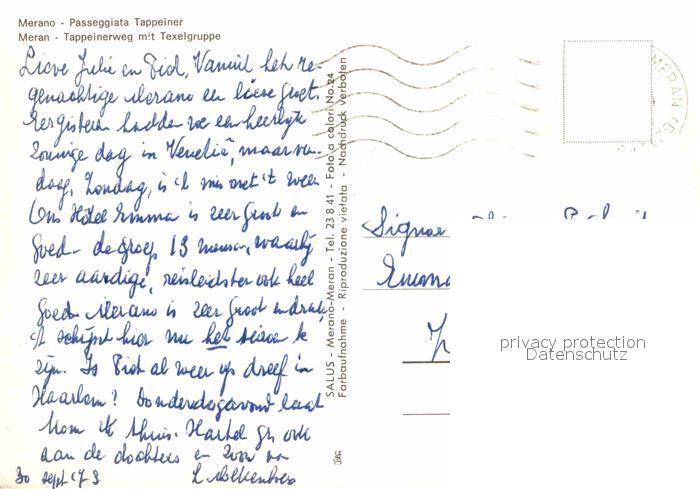 Merano - Passeggiata Tappeiner
Meran - Tappeinerweg mit Texelgruppe
Lieve Julie en Sid, Vanuit het re-
genachtige Merano een lieve groet.
Eergisteren hadden we een heerlijk
zonnige dag in Venetië, maar van-
daag, Zondag, is 't mis met 't weer.
Ons Hotel Emma is zeer groot en
goed - de groep 13 mensen, waarbij
zeer aardige, reisleidster ook heel
goed. Merano is zeer groot en druk,
't schijnt hier nu het seizoen te
zijn. Is Sid al weer op dreef in
Haarlem? Donderdagavond laat
kom ik thuis. Hartel. gr. ook
aan de dochters en zoon van
30 sept '73
SALUS - Merano-Meran - Tel. 23 8 41 - Foto a colori No. 24
Farbaufnahme - Riproduzione vietata - Nachdruck verboten
MERAN
Signor
privacy protection
Datenschutz